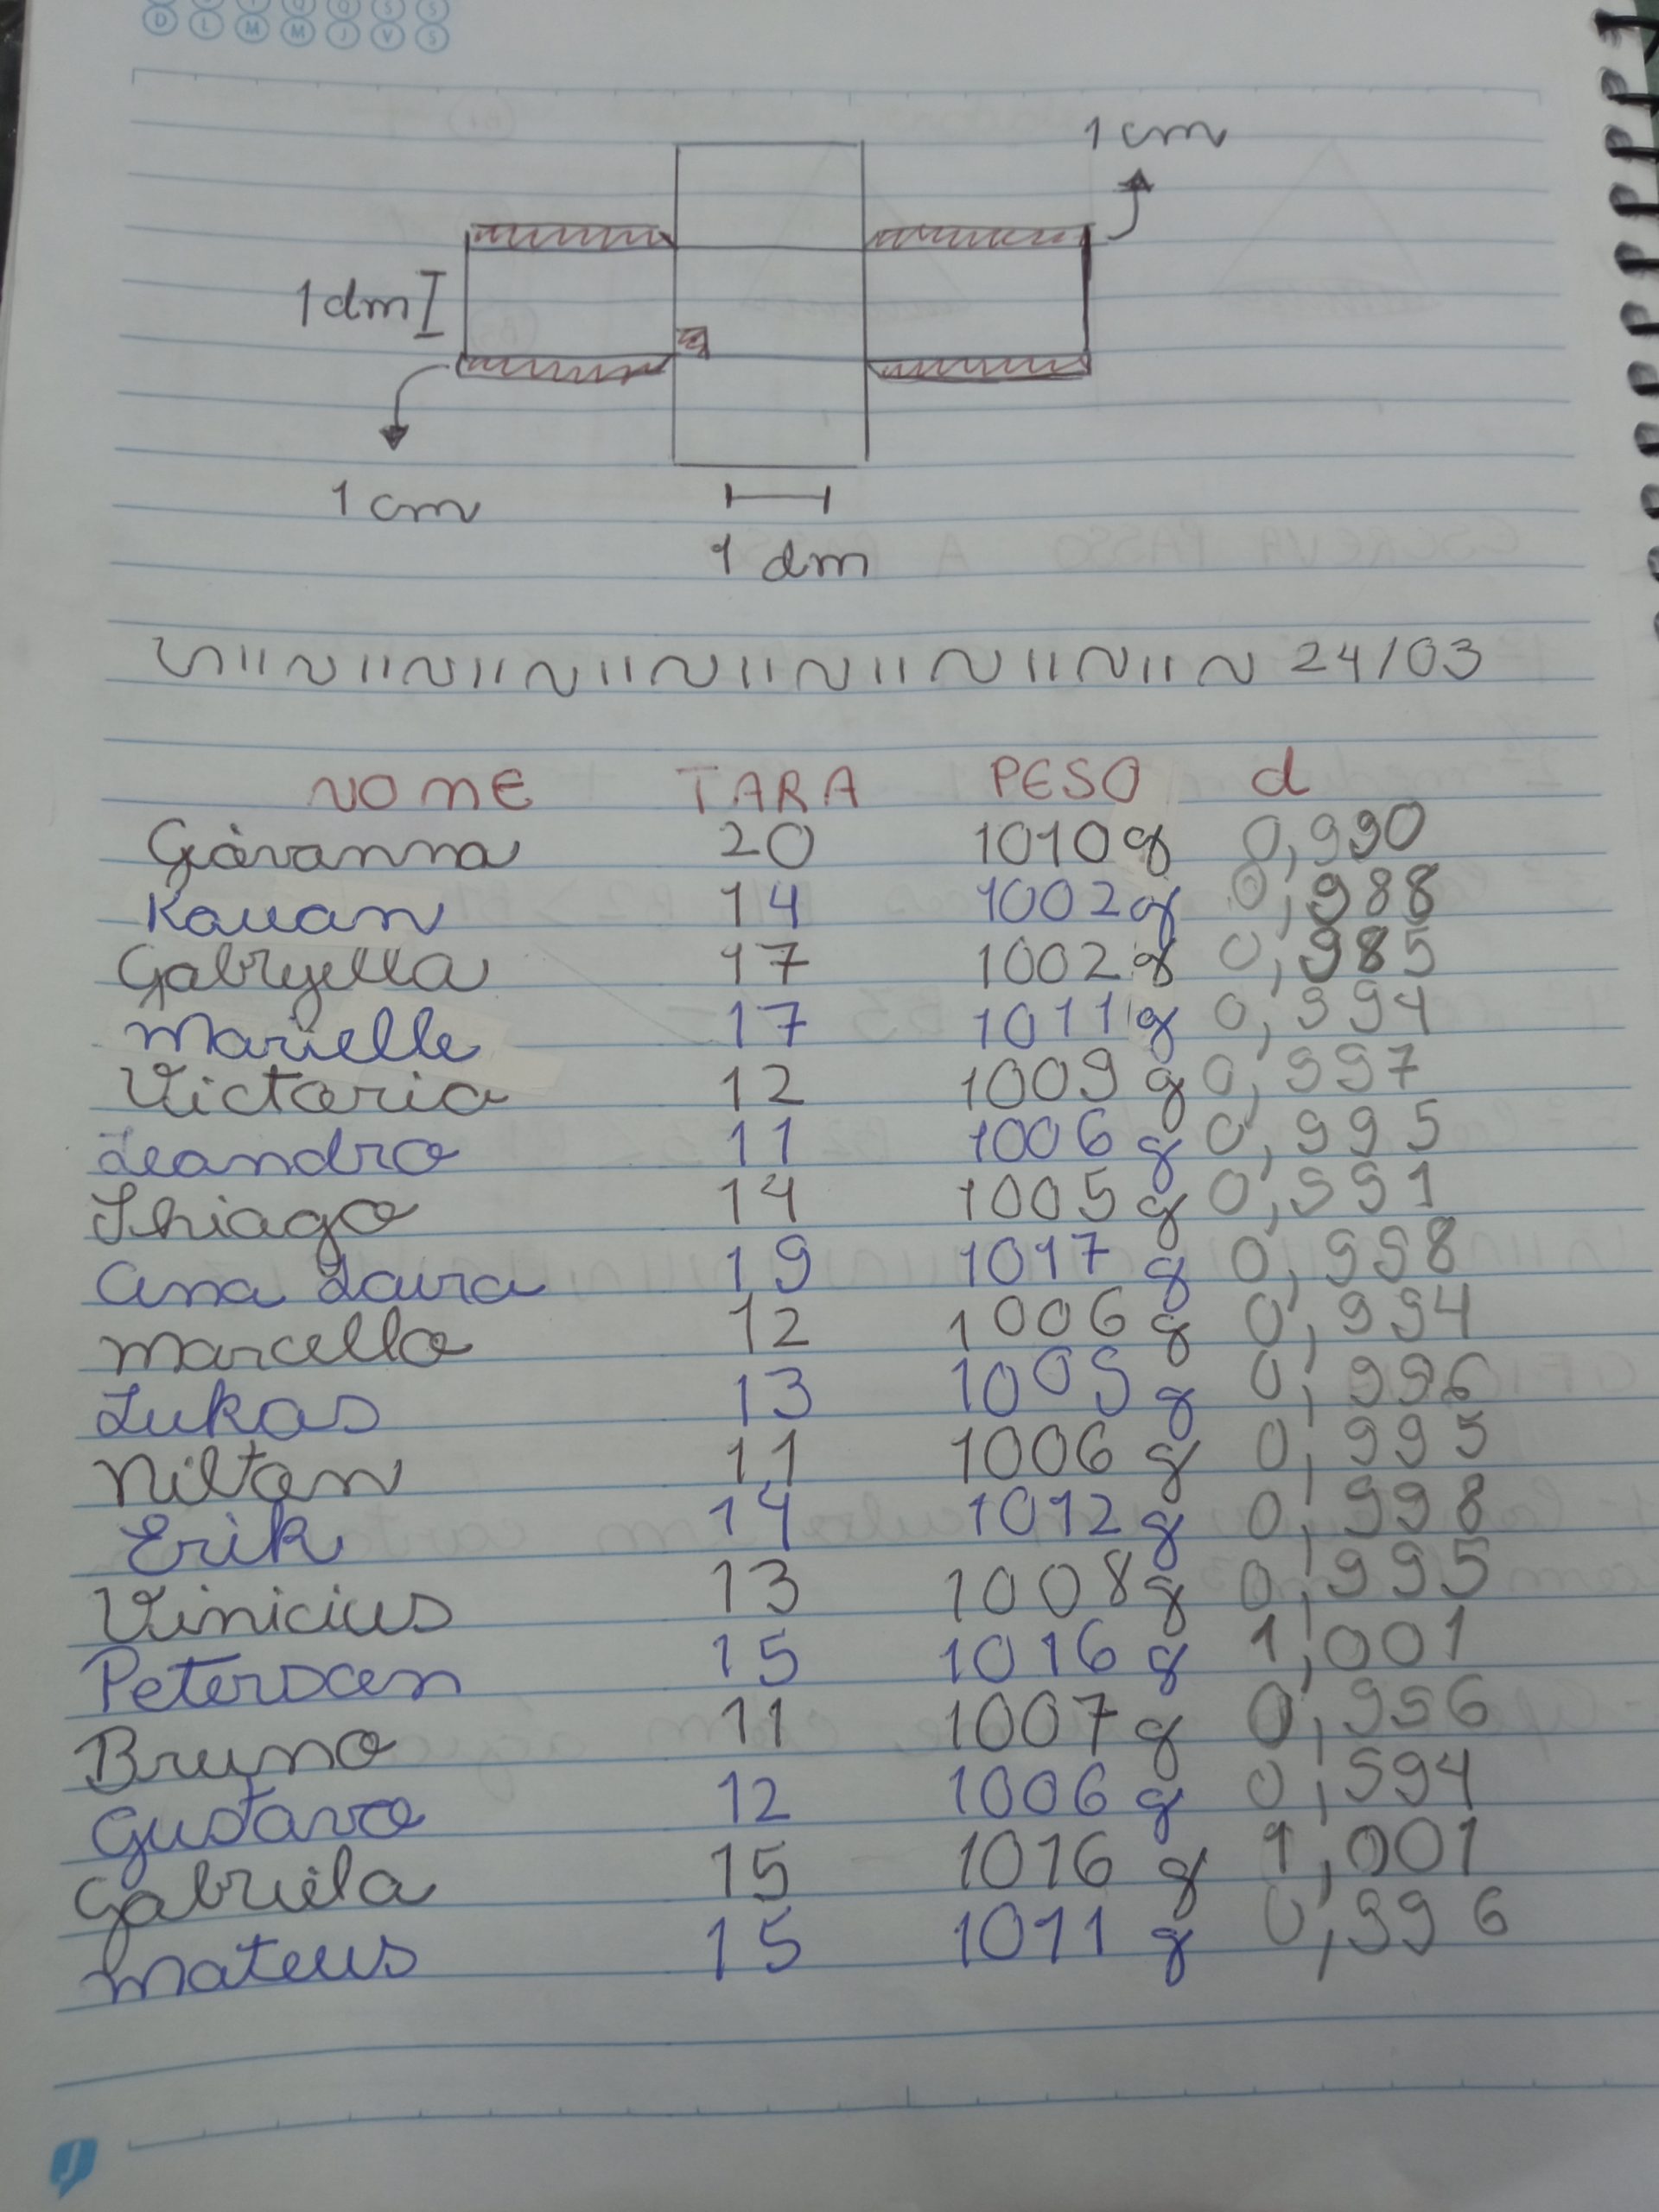 D L M M J V S
1 cm
1 dm
1 cm
1 dm
24/03
NOME TARA PESO d
Giovanna 20 1010 g 0,990
Kauan 14 1002 g 0,988
Gabryella 17 1002 g 0,985
Marielle 17 1011 g 0,994
Victoria 12 1009 g 0,997
Leandro 11 1006 g 0,995
Thiago 14 1005 g 0,991
Ana Laura 19 1017 g 0,998
Marcello 12 1006 g 0,994
Lukas 13 1009 g 0,996
Nilton 11 1006 g 0,995
Erik 14 1012 g 0,998
Vinicius 13 1008 g 0,995
Peterson 15 1016 g 1,001
Bruno 11 1007 g 0,996
Gustavo 12 1006 g 0,994
Gabriela 15 1016 g 1,001
Mateus 15 1011 g 0,996